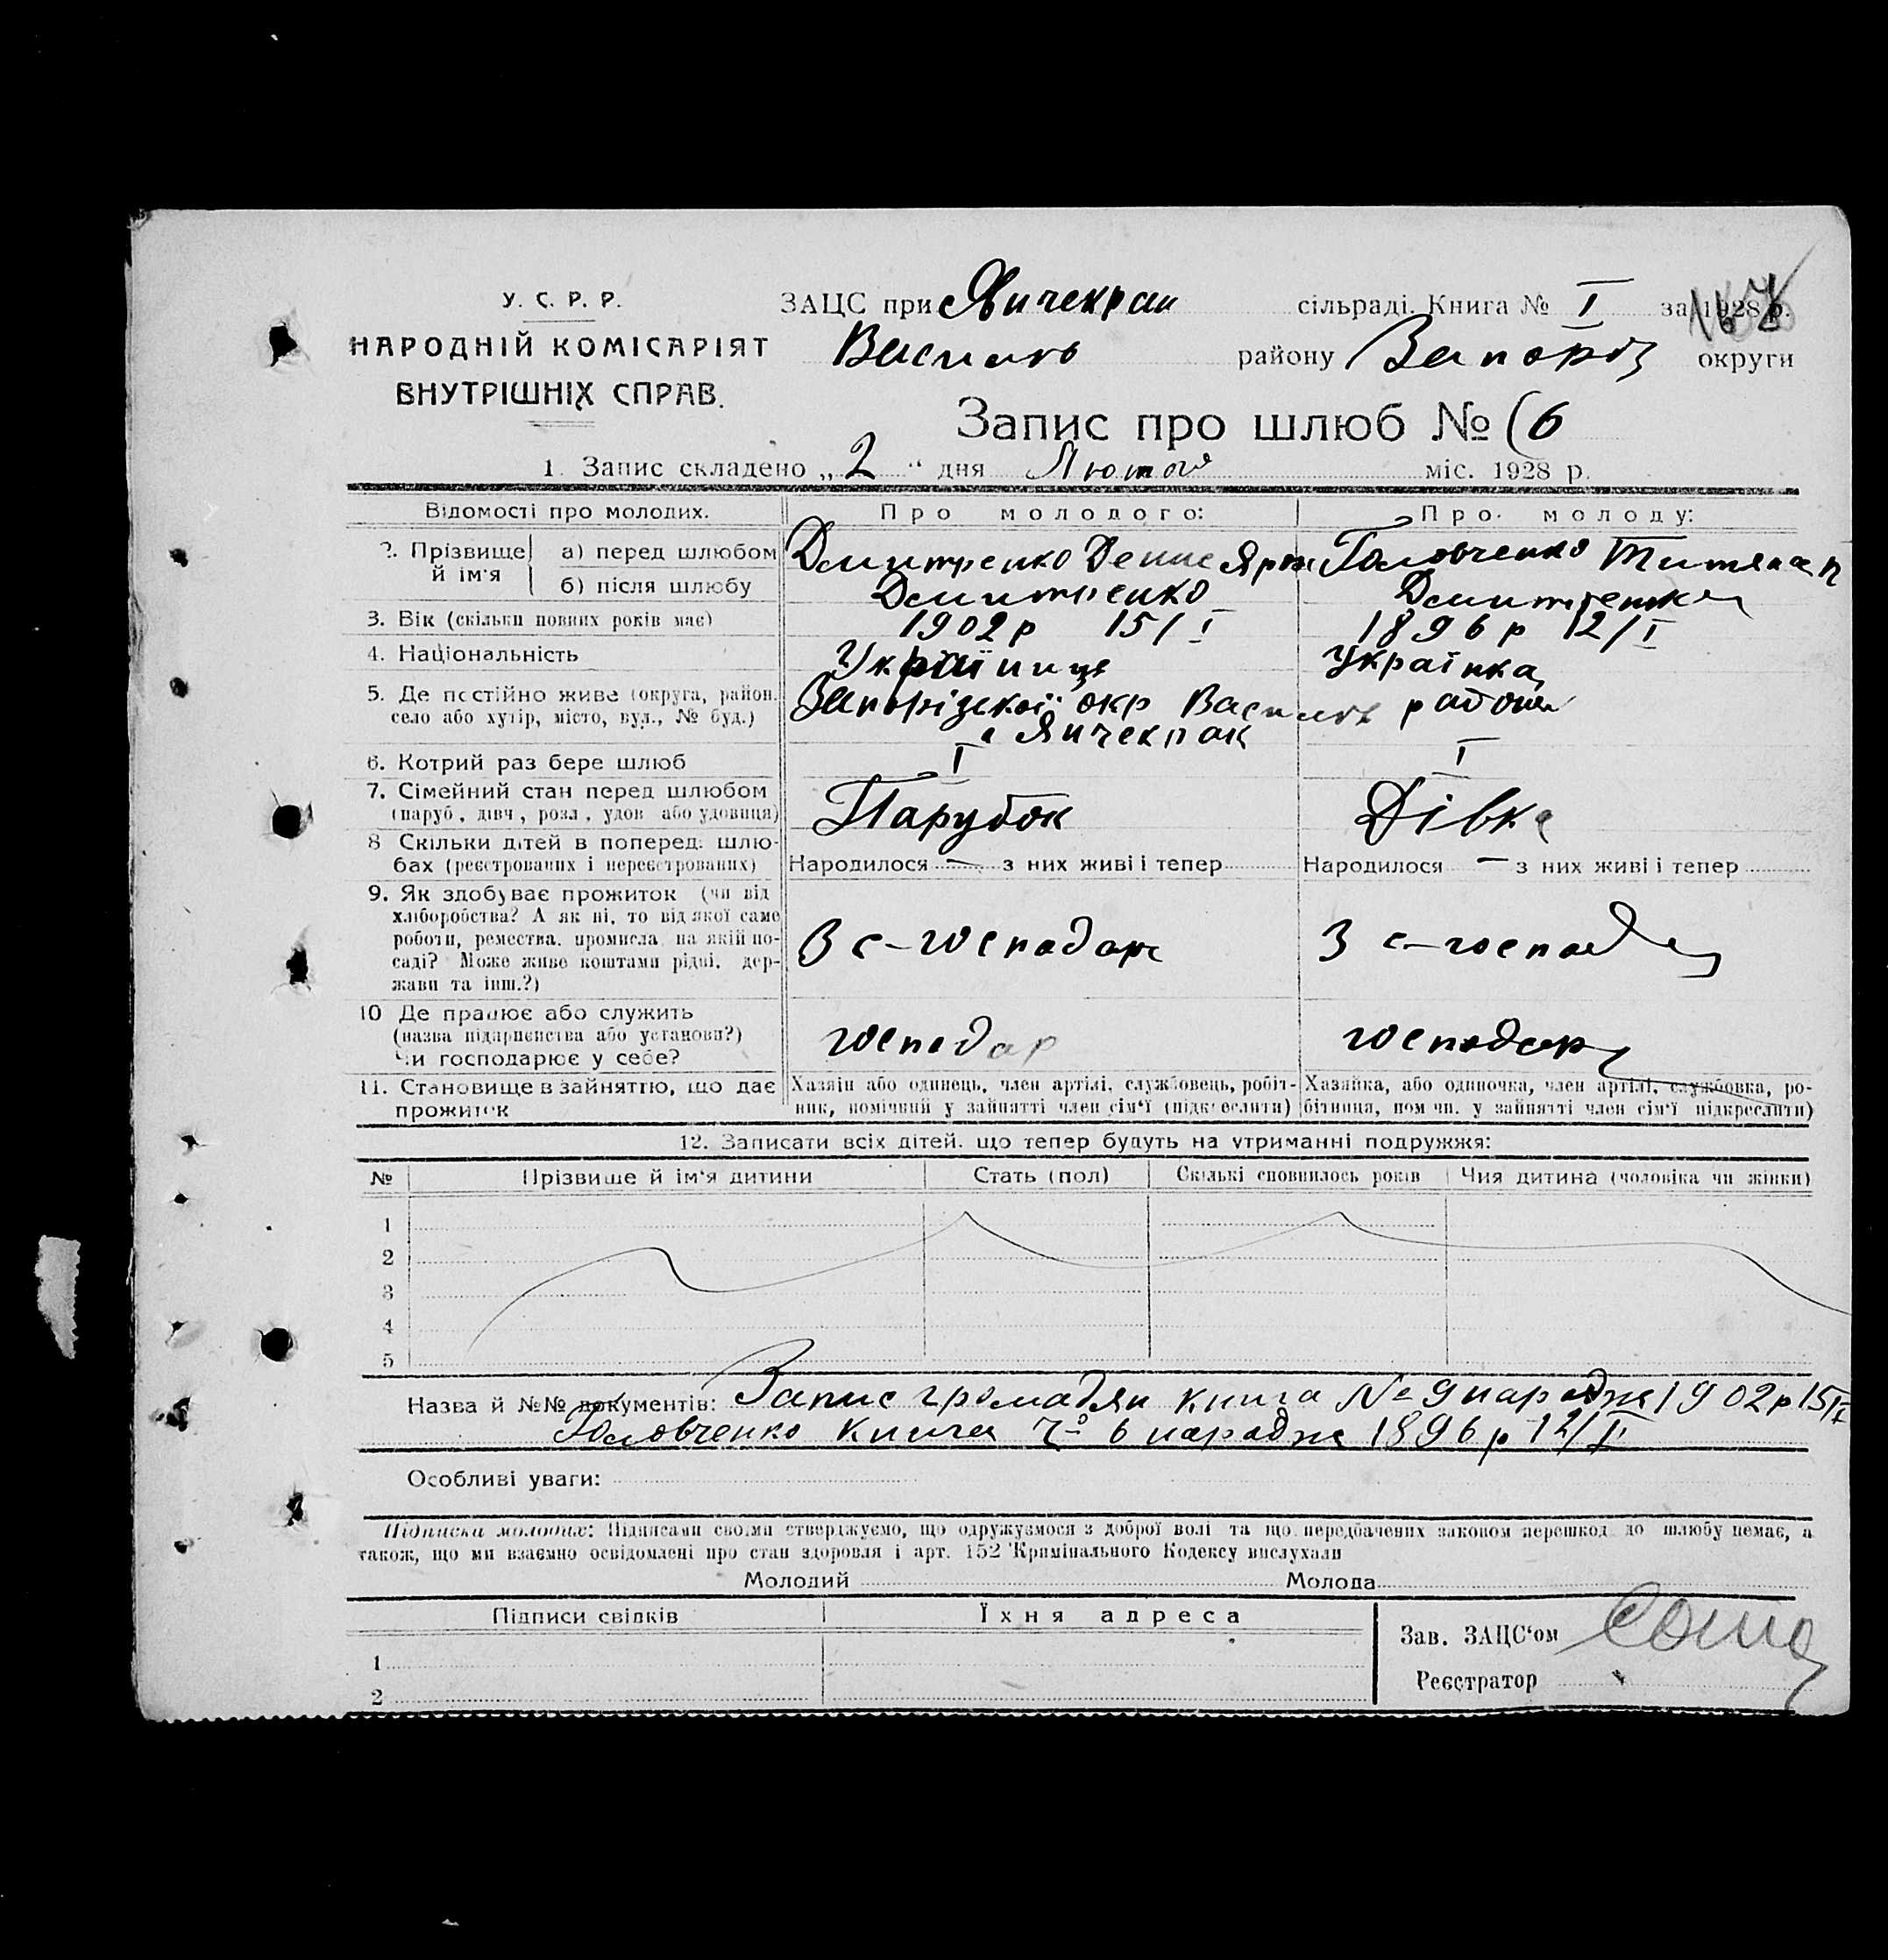 У. С. Р. Р.
НАРОДНІЙ КОМІСАРІЯТ
ВНУТРІШНІХ СПРАВ.
ЗАЦС при Янчекрак сільраді. Книга № I за 1928 р.
Василів району Запоріз округи
Запис про шлюб № 6
1. Запис складено „2“ дня Лютого міс. 1928 р.
Відомості про молодих. Про молодого: Про молоду:
2. Прізвище й ім'я а) перед шлюбом Дмитренко Денис Головченко
б) після шлюбу Дмитренко Дмитренко
3. Вік (скільки повних років має) 1902 р 15/I 1896 р 12/I
4. Національність Українець Українка
5. Де постійно живе (округа, район, Запорізької окр Василів района
село або хутір, місто, вул., № буд.) с Янчекрак
6. Котрий раз бере шлюб I I
7. Сімейний стан перед шлюбом Парубок Дівка
(паруб., дівч., розл., удов. або удовиця)
8 Скільки дітей в поперед. шлю-
бах (реєстрованих і нереєстрованих) Народилося — з них живі і тепер Народилося — з них живі і тепер
9. Як здобуває прожиток (чи від
хліборобства? А як ні, то від якої саме
роботи, ремества, промисла, на якій по- З с-господар З с-господ
саді? Може живе коштами рідні, дер-
жави та інш.?)
10 Де працює або служить
(назва підприєнства або установи?) господар господар
Чи господарює у себе?
11. Становище в зайняттю, що дає Хазяїн або одинець, член артілі, службовець, робіт- Хазяйка, або одиночка, член артілі, службовка, ро-
прожиток ник, помічний у зайнятті член сім'ї (підкреслити) бітниця, помічн. у зайнятті член сім'ї підкреслити)
12. Записати всіх дітей, що тепер будуть на утриманні подружжя:
№ Прізвище й ім'я дитини Стать (пол) Скількі сповнилось років Чия дитина (чоловіка чи жінки)
1
2
3
4
5
Назва й №№ документів: Запис громадян книга № 9 народж 1902 р 15/I
Головченко книга № 6 народж 1896 р 12/I
Особливі уваги:
Підписка молодих: Підписами своїми стверджуємо, що одружуємося з доброї волі та що передбачених законом перешкод до шлюбу немає, а
також, що ми взаємно освідомлені про стан здоровля і арт. 152 Кримінального Кодексу вислухали
Молодий Молода
Підписи свідків Їхня адреса
Зав. ЗАЦС'ом
1
Реєстратор
2